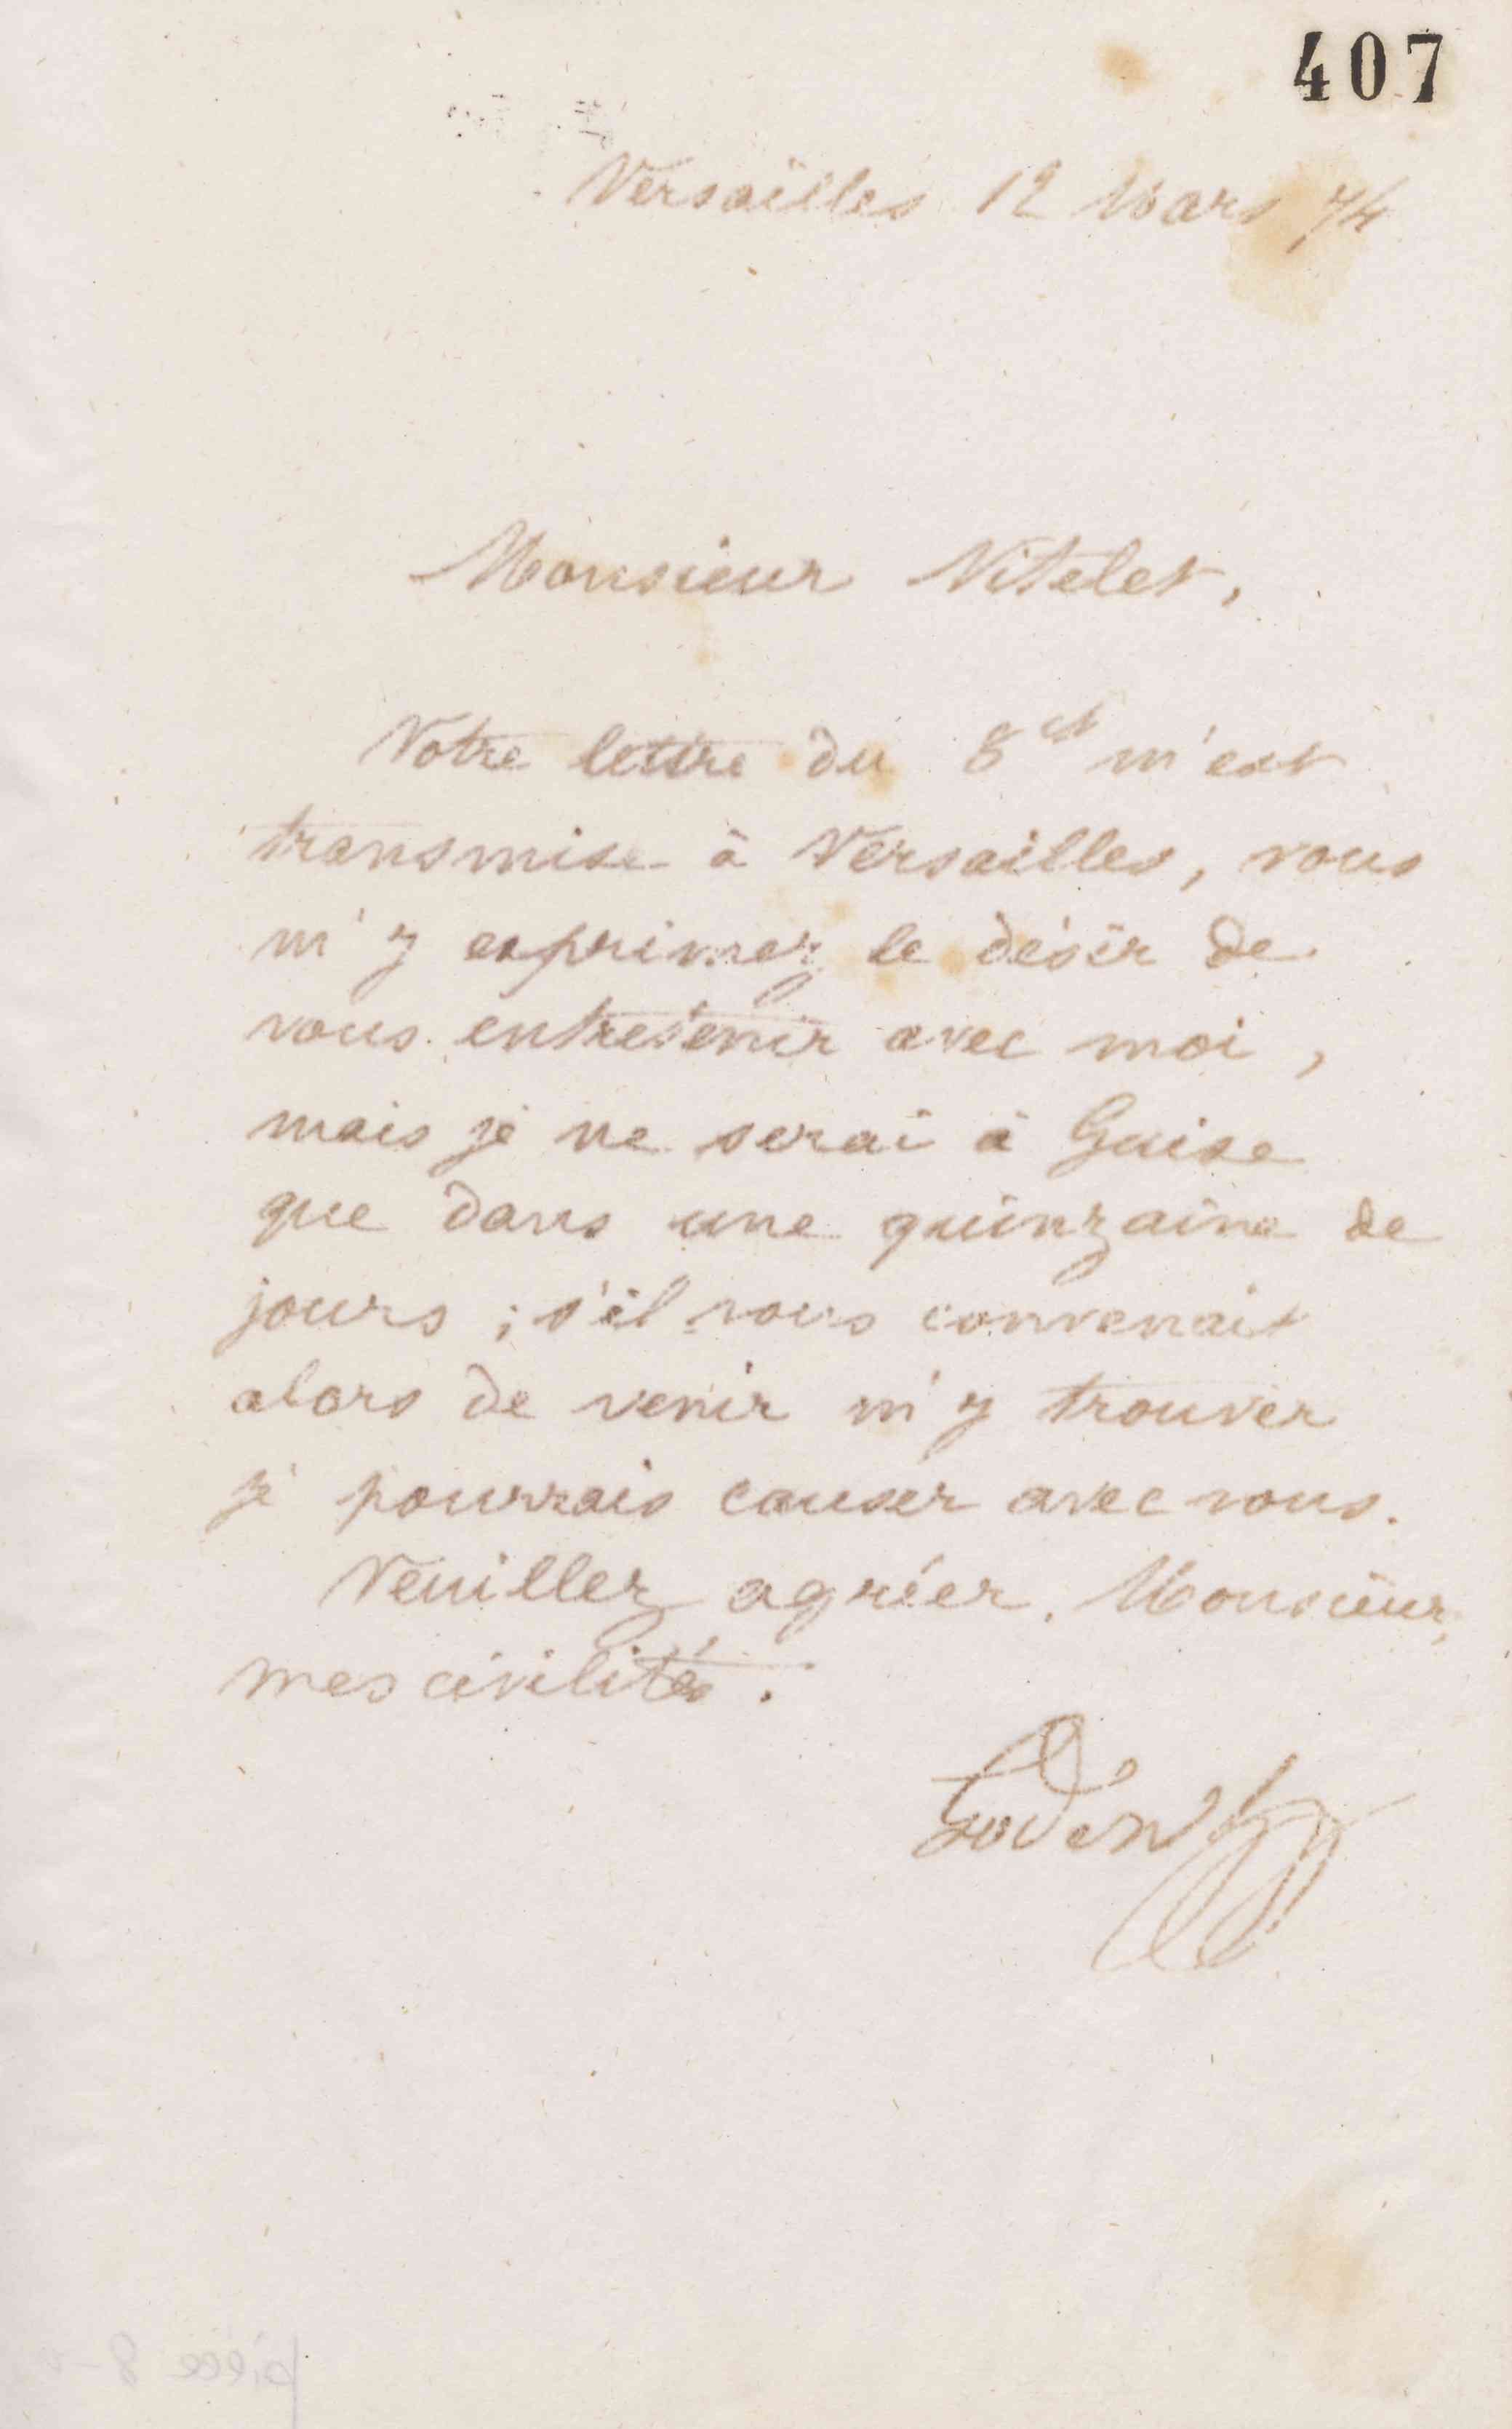 407
Versailles 12 Mars 74
Monsieur Vitelet,
Votre lettre du 8 ct m'est
transmise à Versailles, vous
m'y exprimez le désir de
vous entretenir avec moi,
mais je ne serai à Guise
que dans une quinzaine de
jours ; s'il vous convenait
alors de venir m'y trouver
je pourrais causer avec vous.
Veuillez agréer, Monsieur,
mes civilités.
Godin
pièce 8